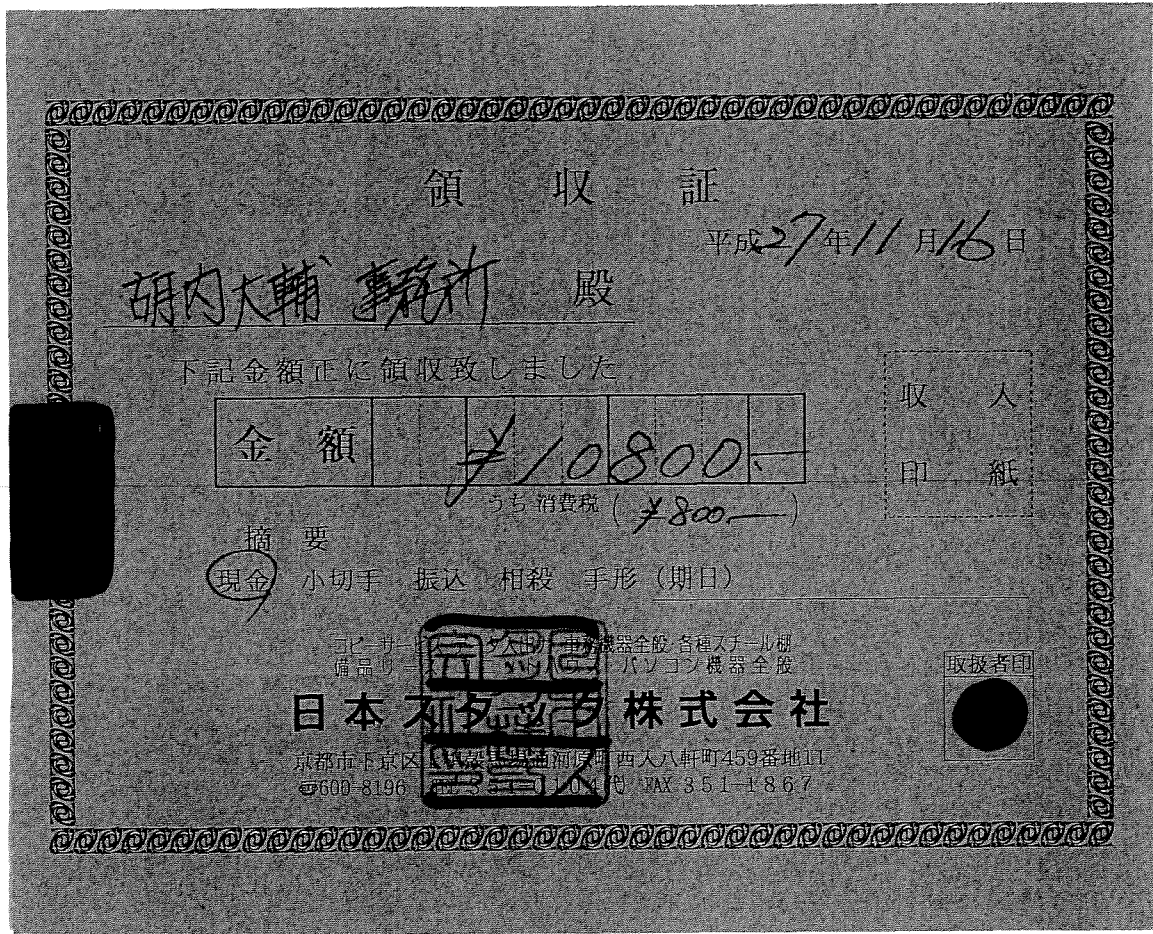 領収証
平成27年11月16日
胡内大輔 事務所 殿
下記金額正に領収致しました
金額 ¥10800.—
うち消費税 (¥800.—)
収入
印紙
摘要
現金 小切手 振込 相殺 手形 (期日)
事務機器全般 各種スチール棚
備品リース パソコン機器全般
取扱者印
日本スタッフ株式会社
京都市下京区 河原町西入八軒町459番地11
〒600-8196 FAX 351-1867